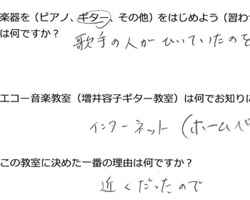 楽器を（ピアノ、ギター、その他）をはじめよう（習わ
は何ですか？
歌手の人がひいていたのを
エコー音楽教室（増井容子ギター教室）は何でお知りに
インターネット（ホームペ
この教室に決めた一番の理由は何ですか？
近くだったので